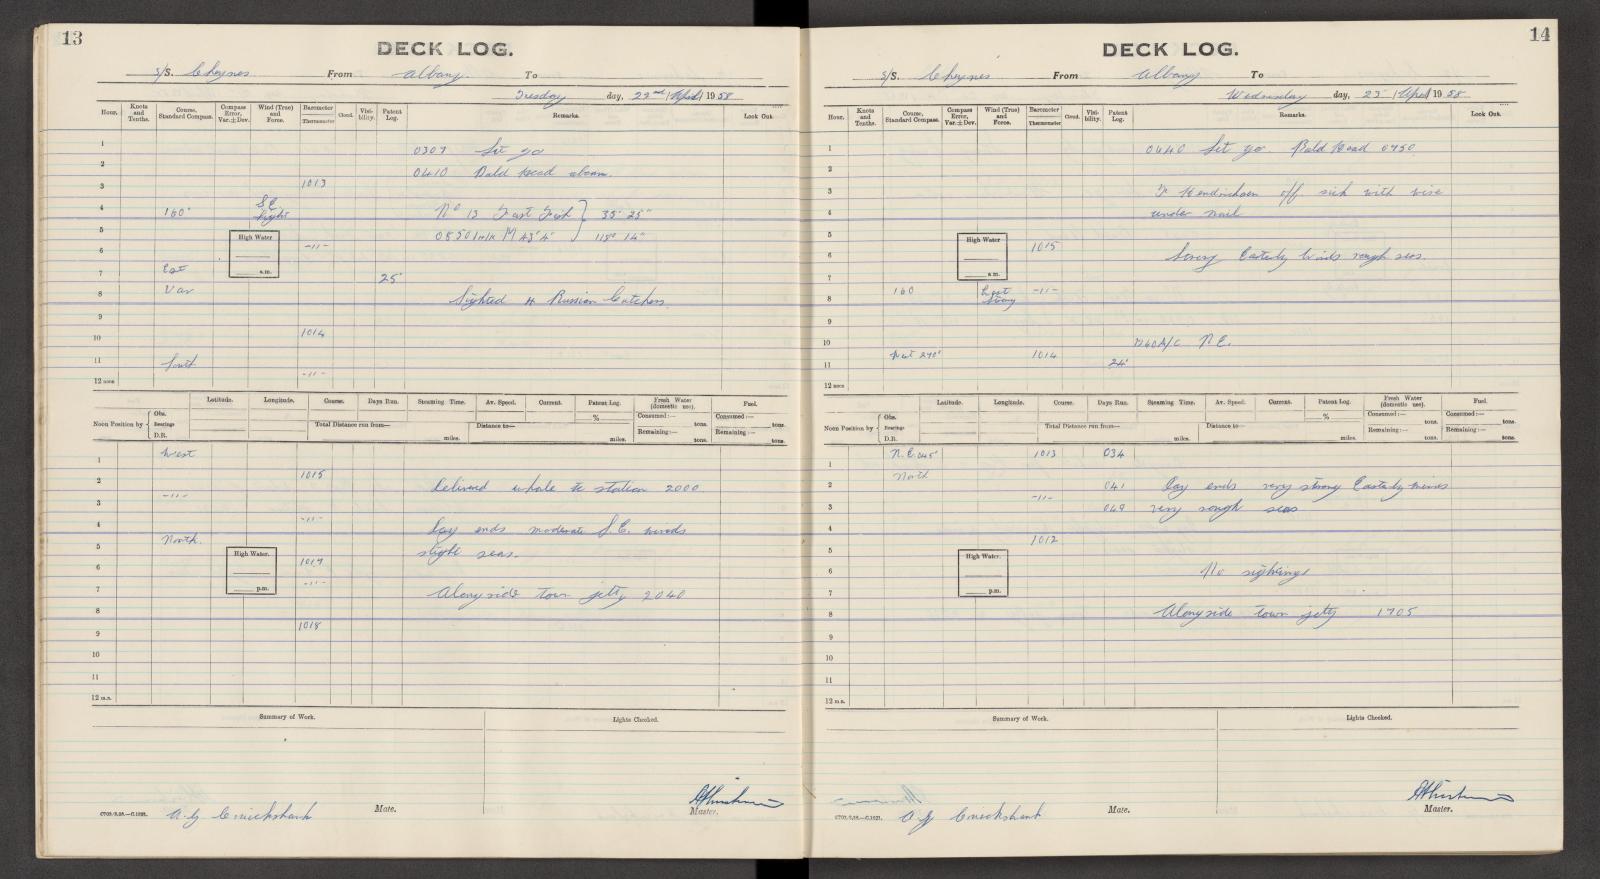 13
DECK LOG.
S/S. Cheynes From Albany To
Tuesday day, 22nd April 1958
Hour. Knots and Tenths. Course, Standard Compass. Compass Error, Var. ± Dev. Wind (True) and Force. Barometer Thermometer Cloud. Visibility. Patent Log. Remarks. Look Out.
1 0307 Let go
2 0410 Bald Head abeam.
3 1013
4 160° S.E. light No 13 Fast Fish } 35° 25"
5 0850 M 43'4" 118° 14"
High Water
a.m.
6 -11-
7 East 25'
8 Var Sighted 4 Russian Catchers
9
10 1014
11 South
12 noon -11-
Latitude. Longitude. Course. Days Run. Steaming Time. Av. Speed. Current. Patent Log. Fresh Water (domestic use). Fuel.
Noon Position by Obs. Bearings D.R. Total Distance run from— miles. Distance to— miles. % Consumed:— tons. Remaining:— tons. Consumed:— tons. Remaining:— tons.
1 West
2 1015 Delivered whale to station 2000
3 -11-
4 -11- Day ends moderate S.E. winds
5 North. slight seas.
High Water.
p.m.
6 1017
7 -11- Alongside town jetty 2040
8
9 1018
10
11
12 m.n.
Summary of Work. Lights Checked.
A. G Cruickshank Mate. Master.
14
DECK LOG.
S/S. Cheynes From Albany To
Wednesday day, 23 April 1958
Hour. Knots and Tenths. Course, Standard Compass. Compass Error, Var. ± Dev. Wind (True) and Force. Barometer Thermometer Cloud. Visibility. Patent Log. Remarks. Look Out.
1 0640 Let go. Bald Head 0750
2
3 Hendrichsen off sick with wire
4 under nail
5 1015
High Water
a.m.
6 Strong Easterly winds rough seas.
7
8 160 East Strong -11-
9
10 A/C N.E.
11 West 270° 1014 24'
12 noon
Latitude. Longitude. Course. Days Run. Steaming Time. Av. Speed. Current. Patent Log. Fresh Water (domestic use). Fuel.
Noon Position by Obs. Bearings D.R. Total Distance run from— miles. Distance to— miles. % Consumed:— tons. Remaining:— tons. Consumed:— tons. Remaining:— tons.
1 N.E. 045° 1013 034
2 North 041 Day ends very strong Easterly winds
3 -11- 049 very rough seas
4
5 1012
High Water.
p.m.
6 No sightings
7
8 Alongside town jetty 1705
9
10
11
12 m.n.
Summary of Work. Lights Checked.
A. G Cruickshank Mate. Master.